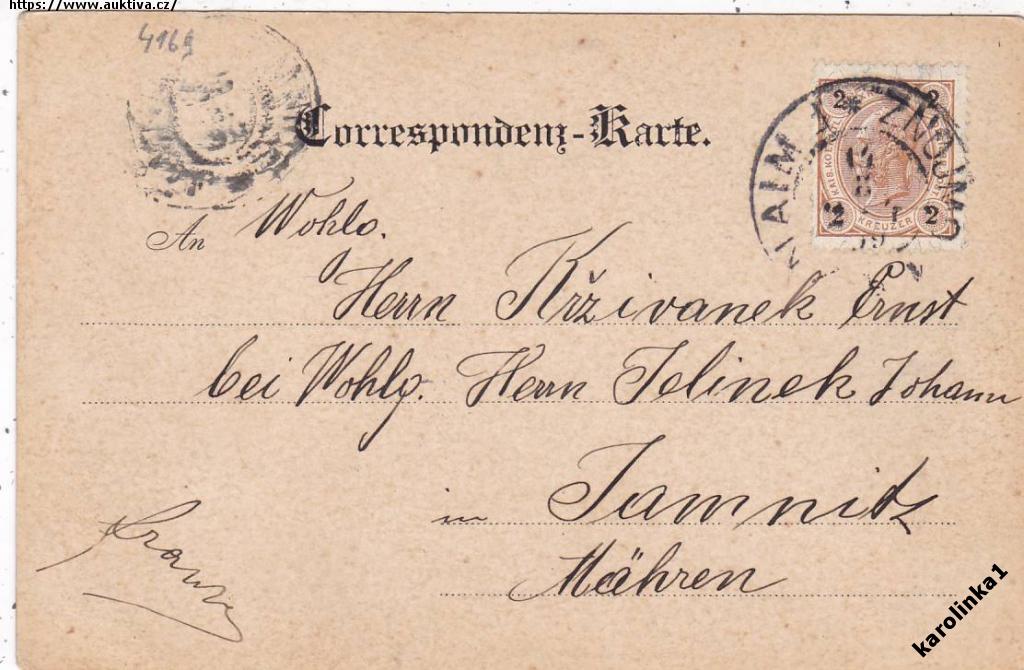 https://www.auktiva.cz/
4169
Correspondenz-Karte.
ZNAIM * ZNOJMO
2 2
2 KREUZER 2
An Wohlg.
Herrn Krživanek Ernst
bei Wohlg. Herrn Jelinek Johann
in Jamnitz
Mähren
karolinka1